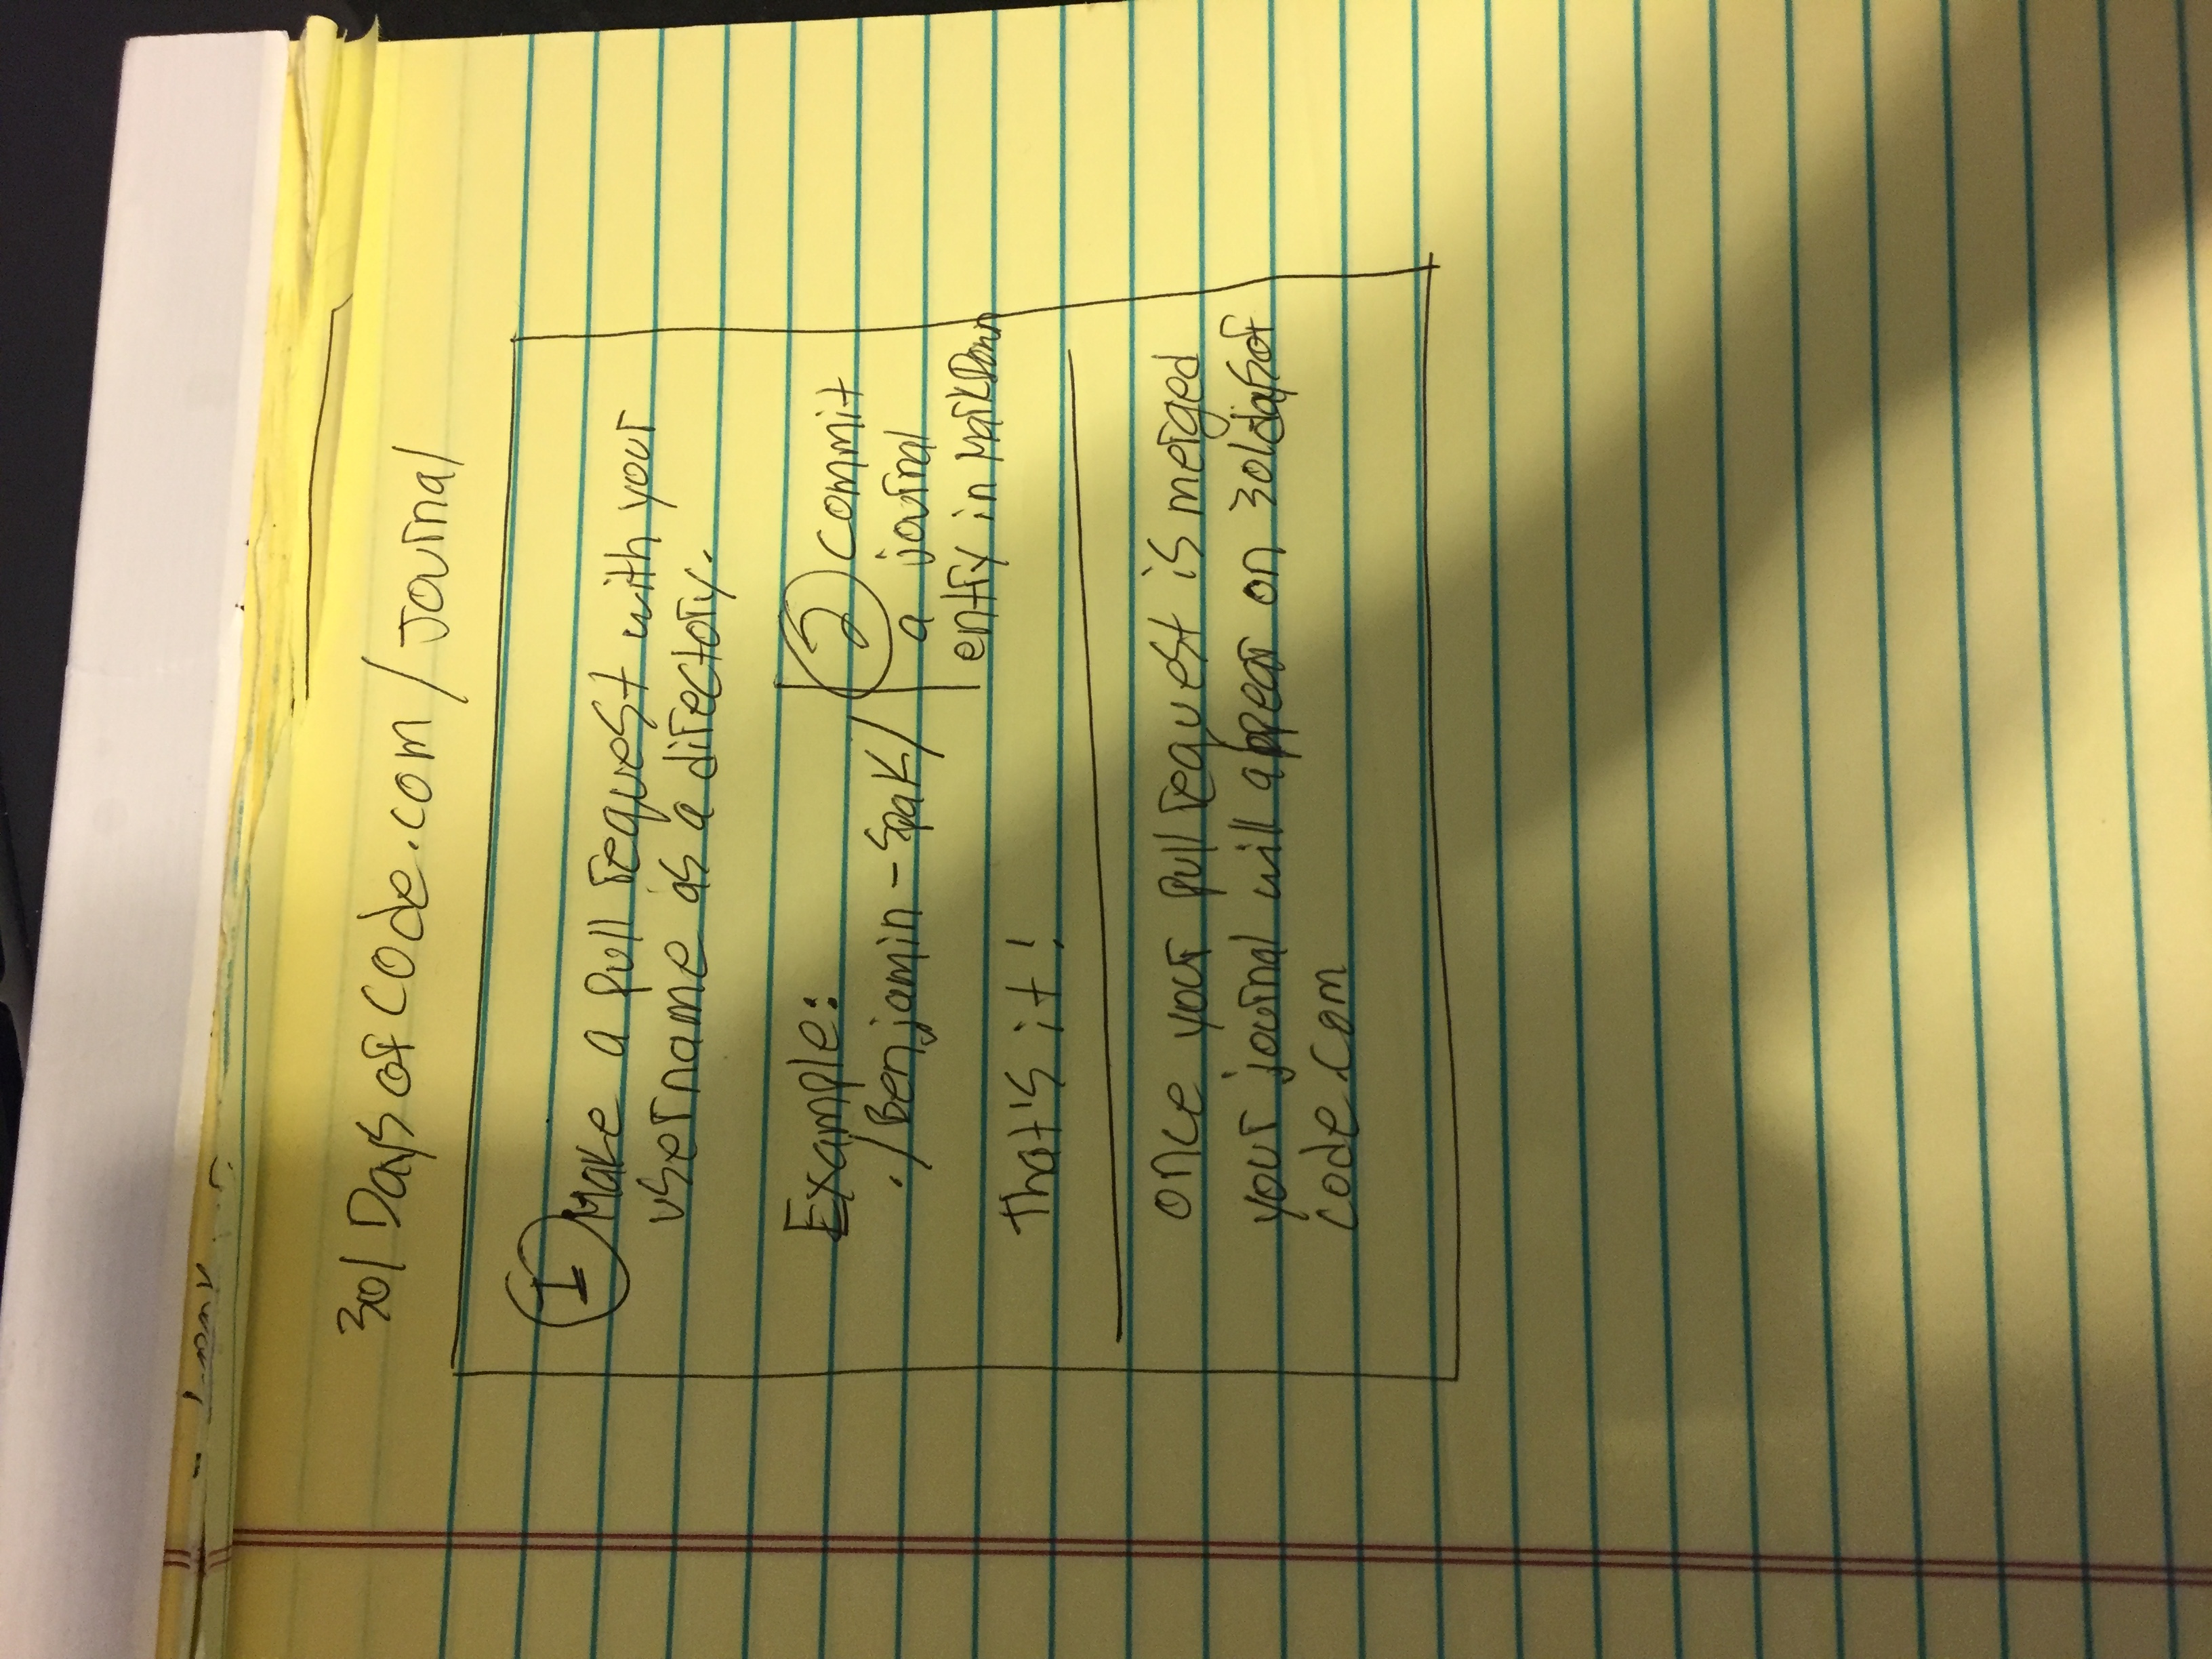 301DaysofCode.com/Journal
1 Make a pull request with your
username as a directory.
Example:
./Benjamin-Spak/
2 commit
a journal
entry in MarkDown
That's it!
once your pull request is merged
your journal will appear on 301daysof
code.com